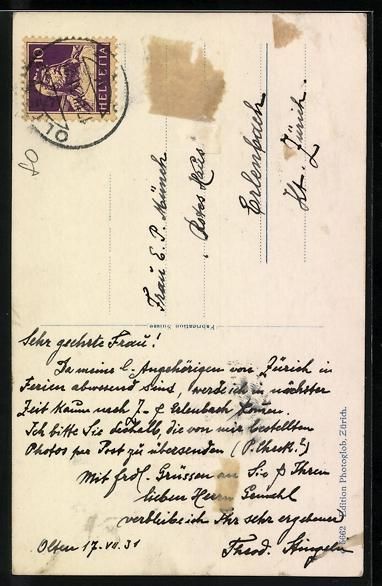 10
HELVETIA
OLTEN
Frau E. P. Münch
Rotes Haus
Erlenbach
Kt. Zürich.
Fabrication Suisse
Sehr geehrte Frau!
Da meine l. Angehörigen von Zürich in
Ferien abwesend sind, werde ich in nächster
Zeit kaum nach Z- & Erlenbach kommen.
Ich bitte Sie deshalb, die von mir bestellten
Photos per Post zu übersenden (P. Check!)
Mit frdl. Grüssen an Sie & Ihren
lieben Herrn Gemahl
verbleibe ich Ihr sehr ergebener
Olten 17. VII. 31 Theod.
6962 Edition Photoglob, Zürich.